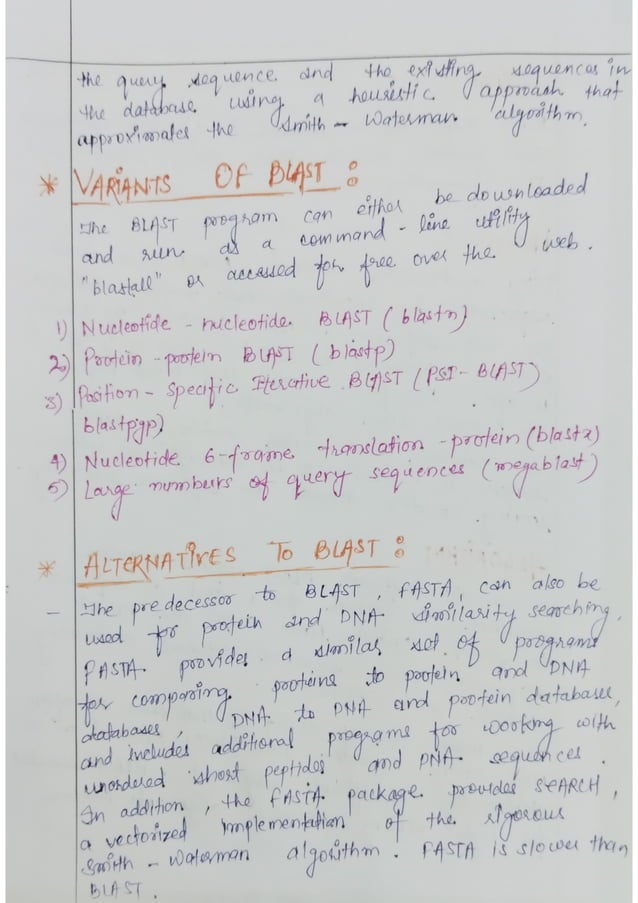 the query sequence and the existing sequences in
the database using a heuristic approach that
approximates the Smith - Waterman algorithm.
* VARIANTS OF BLAST :
The BLAST program can either be downloaded
and run as a command - line utility
"blastall" or accessed for free over the web.
1) Nucleotide - nucleotide BLAST (blastn)
2) Protein - protein BLAST (blastp)
3) Position - Specific Iterative BLAST (PSI - BLAST)
blastpgp)
4) Nucleotide 6-frame translation - protein (blastx)
5) Large numbers of query sequences (megablast)
* ALTERNATIVES TO BLAST :
- The predecessor to BLAST, FASTA, can also be
used for protein and DNA similarity searching.
FASTA provides a similar set of programs
for comparing proteins to protein and DNA
databases, DNA to DNA and protein databases,
and includes additional programs for working with
unordered short peptides and DNA sequences.
In addition, the FASTA package provides SEARCH,
a vectorized implementation of the rigorous
Smith - Waterman algorithm. FASTA is slower than
BLAST.